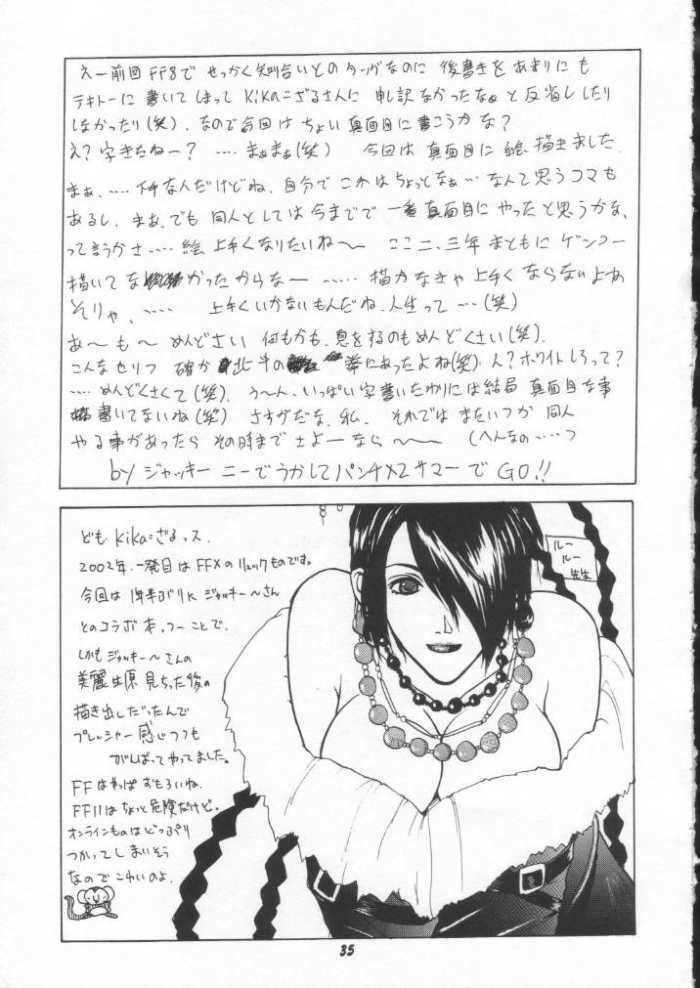 えー前回FF8で せっかく知り合いとのターンがなのに 後書きをあまりにも
テキトーに書いてしまって Kikaこざるさんに 申し訳なかったなぁと反省したり
しなかったり(笑)、なので今回は ちょい真面目に書こうかな?
え?字きたねー? ‥‥まぁまぁ(笑) 今回は真面目に絵、描きました。
まぁ、‥‥下手なんだけどね、自分でこれはちょっとなぁ…なんて思うコマも
あるし、まぁ、でも 同人としては今までで一番真面目にやったと思うかな、
って言うかさ‥‥絵 上手くなりたいね〜 ここ二、三年まともにゲンコー
描いてなかったからなー ‥‥‥描かなきゃ上手くならないよね
そりゃ、‥‥‥ 上手くいかないもんだね、人生って…(笑)
あ〜も〜 めんどさい 何もかも、息をするのもめんどくさい(笑)。
こんなセリフ 確か 北斗の 拳にあったよね(笑)。ん?ホワイトしろって?
‥‥めんどくさくて(笑)。う〜ん、いっぱい字書いたわりには結局真面目な事
書いてないね(笑) さすがだな、私、 それでは またいつか 同人
やる事があったら その時まで さよーなら〜〜 (へんなの‥‥っ
by ジャッキー ニーでうかしてパンチ×2サマーでGO!!
ども Kikaこざるっス。
2002年、一発目はFFXのリュックものです。
今回は 1年半ぶりに ジャッキー〜さん
とのコラボ本っつーことで、
しかもジャッキー〜さんの
美麗生原見ちった後の
描き出しだったんで
プレッシャー感じつつも
がんばってやってました。
FFはやっぱおもろいね。
FF11はちょっと危険だけど。
オンラインものはどっぷり
つかってしまいそう
なのでこわいのよ。
ルー
ルー
先生
35